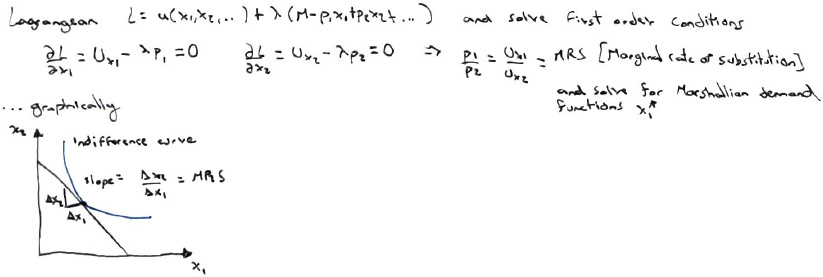 Lagrangean L = u(x₁,x₂,...) + λ(M-p₁x₁+p₂x₂+...) and solve first order conditions
∂L/∂x₁ = Uₓ₁ - λp₁ = 0 ∂L/∂x₂ = Uₓ₂ - λp₂ = 0 ⇒ p₁/p₂ = Uₓ₁/Uₓ₂ = MRS [Marginal rate of substitution]
and solve for Marshallian demand
functions x₁*
... graphically
x₂
indifference curve
slope = Δx₂/Δx₁ = MRS
Δx₂
Δx₁
x₁